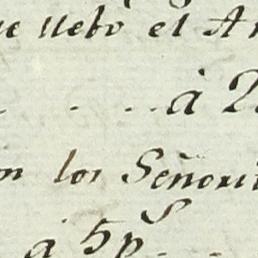 ue llebò el A
. . . . à 2
n los Señori
à 5 p.s . .